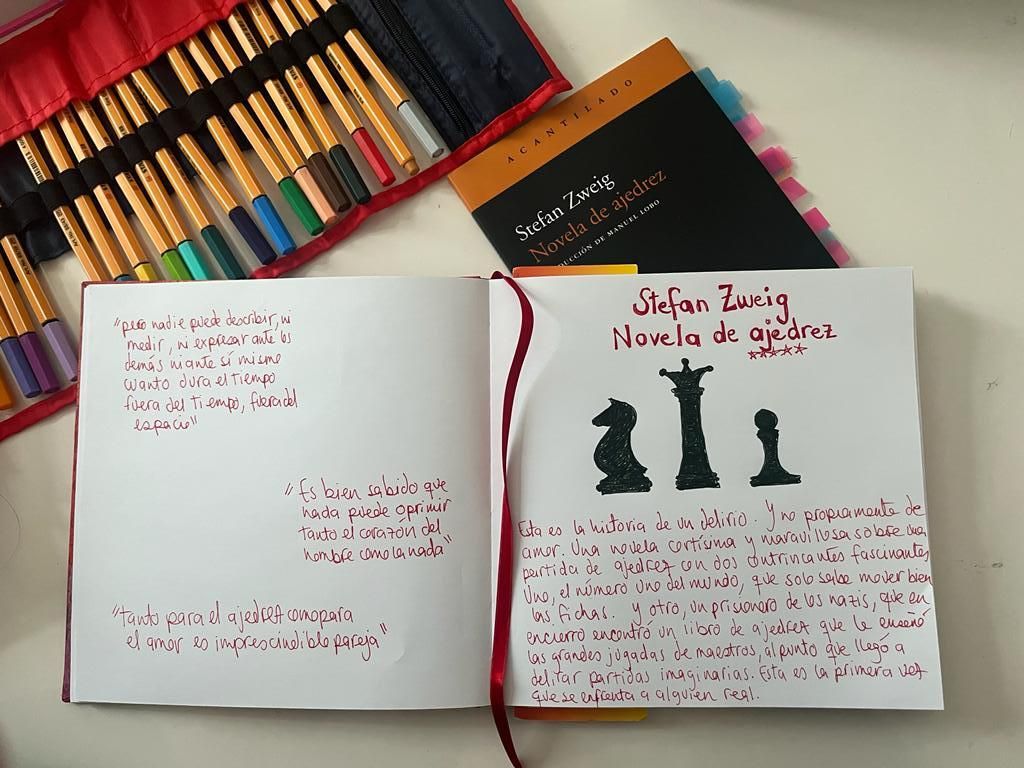 ACANTILADO
Stefan Zweig
Novela de ajedrez
DUCCIÓN DE MANUEL LOBO
"pero nadie puede describir, ni
medir, ni expresar ante los
demás ni ante sí mismo
cuanto dura el tiempo
fuera del tiempo, fuera del
espacio"
"Es bien sabido que
nada puede oprimir
tanto el corazón del
hombre como la nada"
"Tanto para el ajedrez como para
el amor es imprescindible pareja"
Stefan Zweig
Novela de ajedrez
Esta es la historia de un delirio. Y no propiamente de
amor. Una novela cortísima y maravillosa sobre una
partida de ajedrez con dos contrincantes fascinantes
Uno, el número uno del mundo, que solo sabe mover bien
las fichas. y otro, un prisionero de los nazis, que en
encierro encontró un libro de ajedrez que le enseñó
las grandes jugadas de maestros, al punto que llegó a
delirar partidas imaginarias. Esta es la primera vez
que se enfrenta a alguien real.